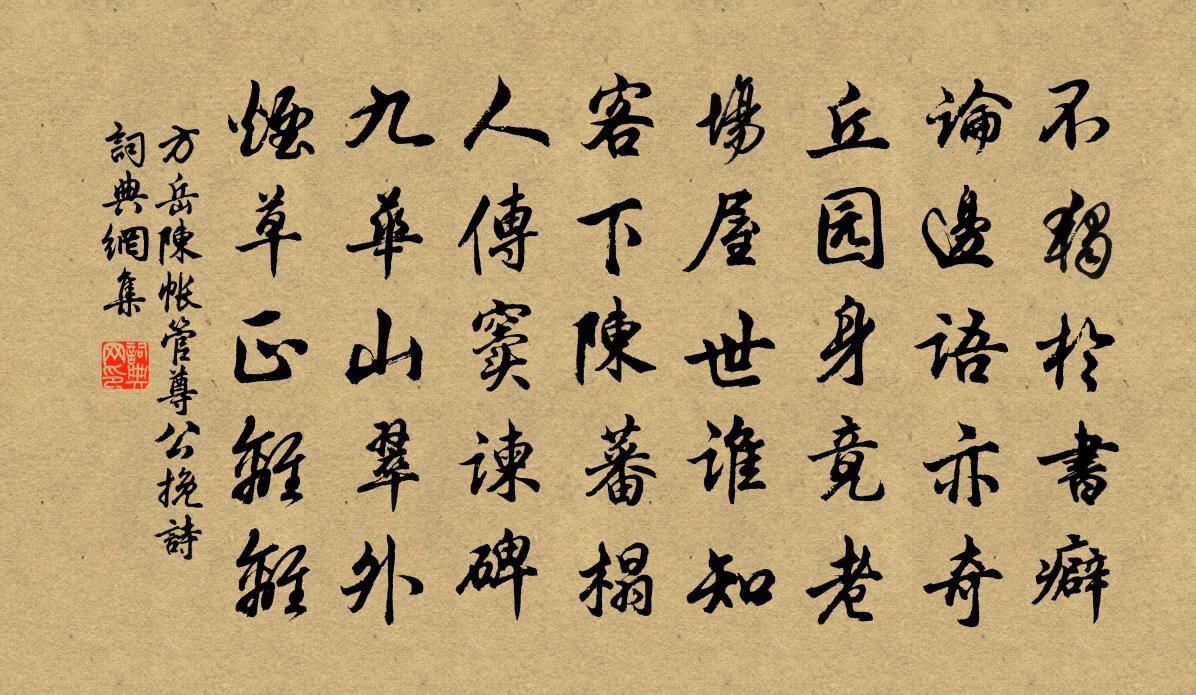 不獨於書癖
論邊語亦奇
丘园身竟老
場屋世誰知
客下陳蕃榻
人傳竇諫碑
九華山翠外
煙草正離離
方岳陳帳管尊公挽詩
詞典網集
詞典网印